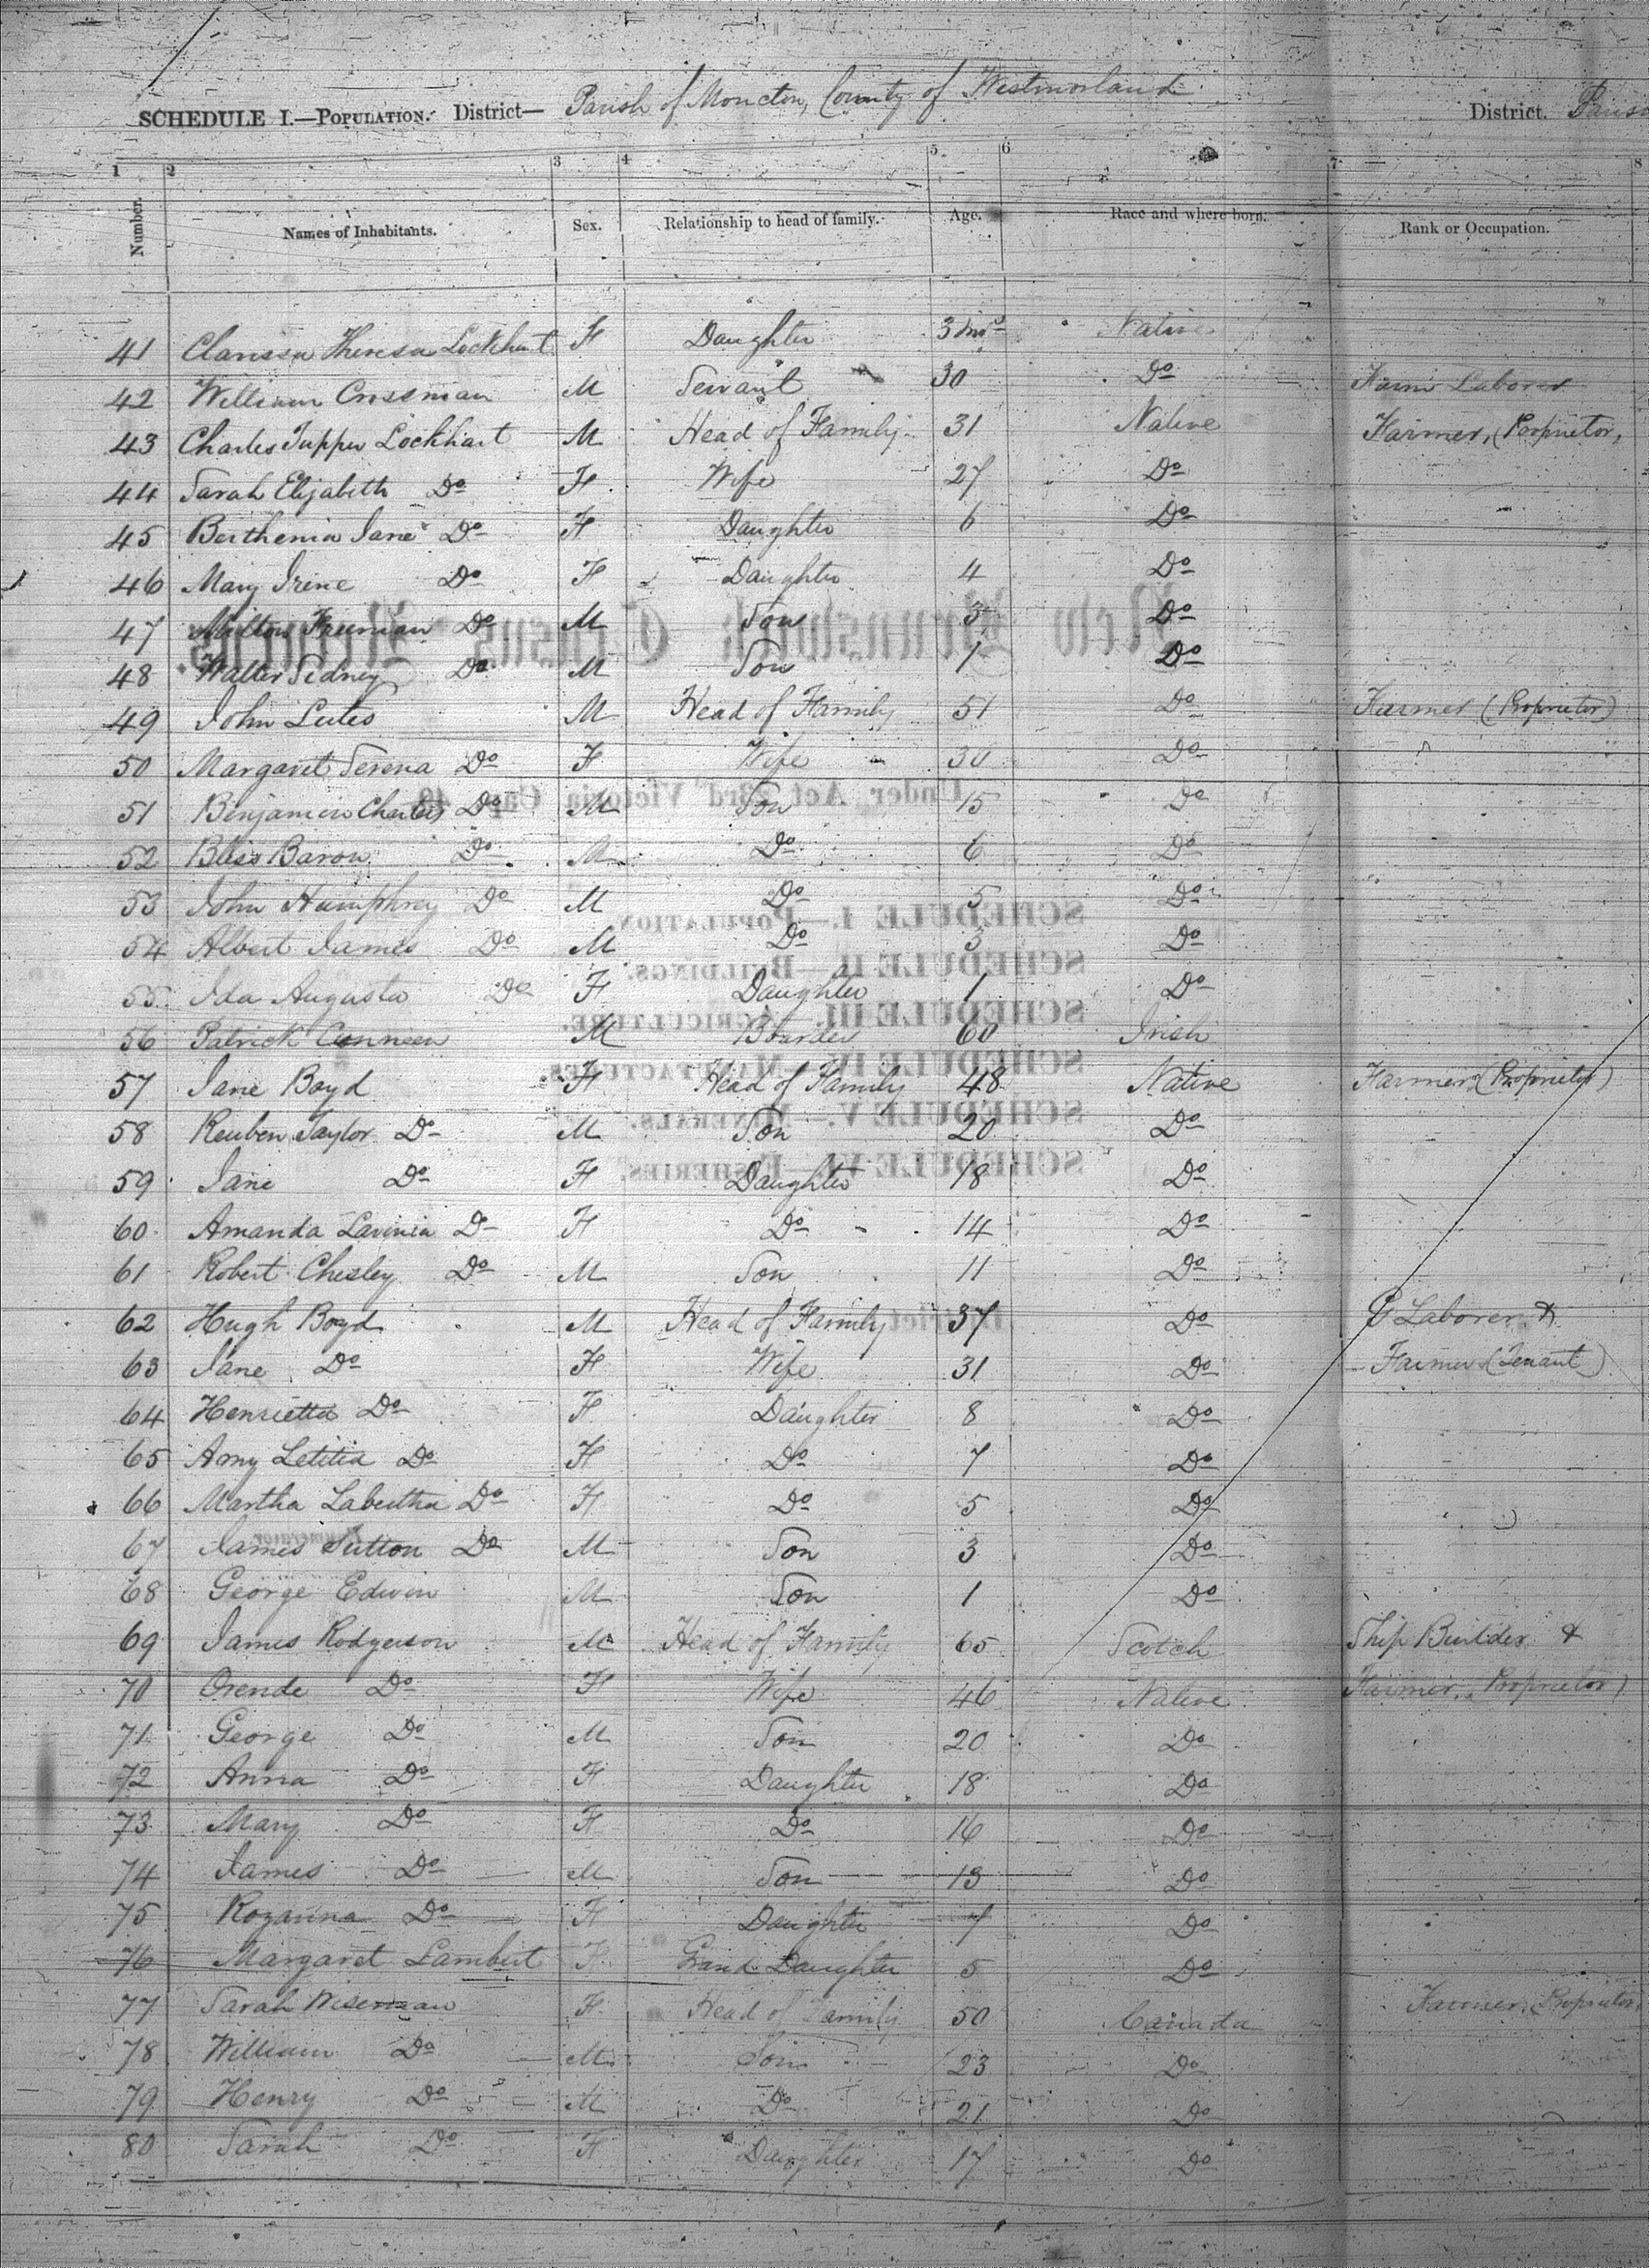 SCHEDULE I.—POPULATION. District— Parish of Moncton, County of Westmorland District.
1 2 3 4 5 6 7 8
Number. Names of Inhabitants. Sex. Relationship to head of family. Age. Race and where born. Rank or Occupation.
41 Clarissa Theresa Lockhart F Daughter 3 mos Native
42 William Crossman M Servant 30 Do Farm Laborer
43 Charles Tupper Lockhart M Head of Family 31 Native Farmer, (Proprietor,
44 Sarah Elizabeth Do F Wife 27 Do
45 Berthenia Jane Do F Daughter 6 Do
46 Mary Irene Do F Daughter 4 Do
47 Milton Freeman Do M Son 3 Do
48 Walter Sidney Do M Son 1 Do
49 John Lutes M Head of Family 51 Do Farmer (Proprietor)
50 Margaret Serena Do F Wife 30 Do
51 Benjamin Charles Do M Son 15 Do
52 Bliss Baron Do M Do 6 Do
53 John Humphrey Do M Do 5 Do
54 Albert James Do M Do 3 Do
55 Ida Augusta Do F Daughter 1 Do
56 Patrick M Boarder 60 Irish
57 Jane Boyd F Head of Family 48 Native Farmer (Proprietor)
58 Reuben Taylor Do M Son 20 Do
59 Jane Do F Daughter 18 Do
60 Amanda Lavinia Do F Do 14 Do
61 Robert Chesley Do M Son 11 Do
62 Hugh Boyd M Head of Family 37 Do Laborer &
63 Jane Do F Wife 31 Do Farmer (Tenant)
64 Henrietta Do F Daughter 8 Do
65 Amy Letitia Do F Do 7 Do
66 Martha Labertha Do F Do 5 Do
67 James Sutton Do M Son 3 Do
68 George Edwin M Son 1 Do
69 James Rodgerson M Head of Family 65 Scotch Ship Builder &
70 Orende Do F Wife 46 Native Farmer, Proprietor)
71 George Do M Son 20 Do
72 Anna Do F Daughter 18 Do
73 Mary Do F Do 16 Do
74 James Do M Son 13 Do
75 Rozanna Do F Daughter 7 Do
76 Margaret Lambert F Grand Daughter 5 Do
77 Sarah Wiseman F Head of Family 50 Canada Farmer, (Proprietor,
78 William Do M Son 23 Do
79 Henry Do M Do 21 Do
80 Sarah Do F Daughter 17 Do